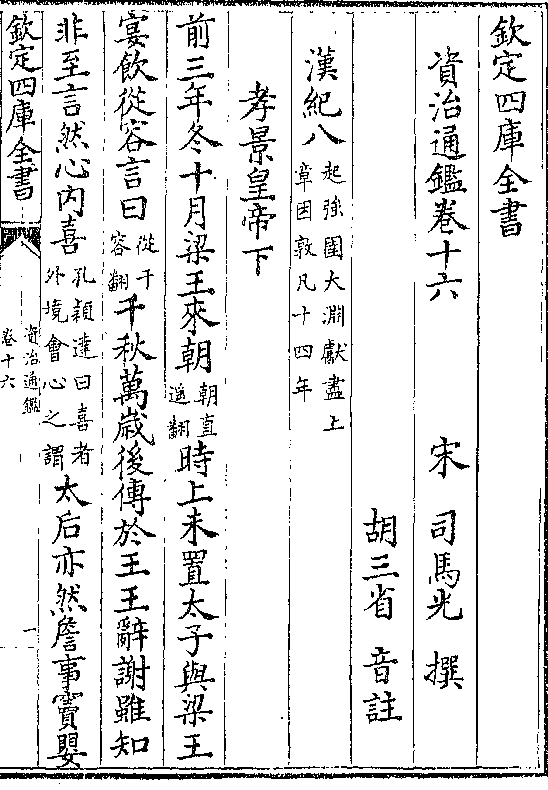 欽定四庫全書
資治通鑑卷十六
宋 司馬光 撰
胡三省 音註
漢紀八 起強圉大淵獻盡上
章困敦凡十四年
孝景皇帝下
前三年冬十月梁王來朝 朝直
遥翻 時上未置太子與梁王
宴飲從容言曰 從千
容翻 千秋萬歳後傳於王王辭謝雖知
非至言然心内喜 孔穎達曰喜者
外境會心之謂 太后亦然詹事竇嬰
欽定四庫全書
資治通鑑
卷十六
一